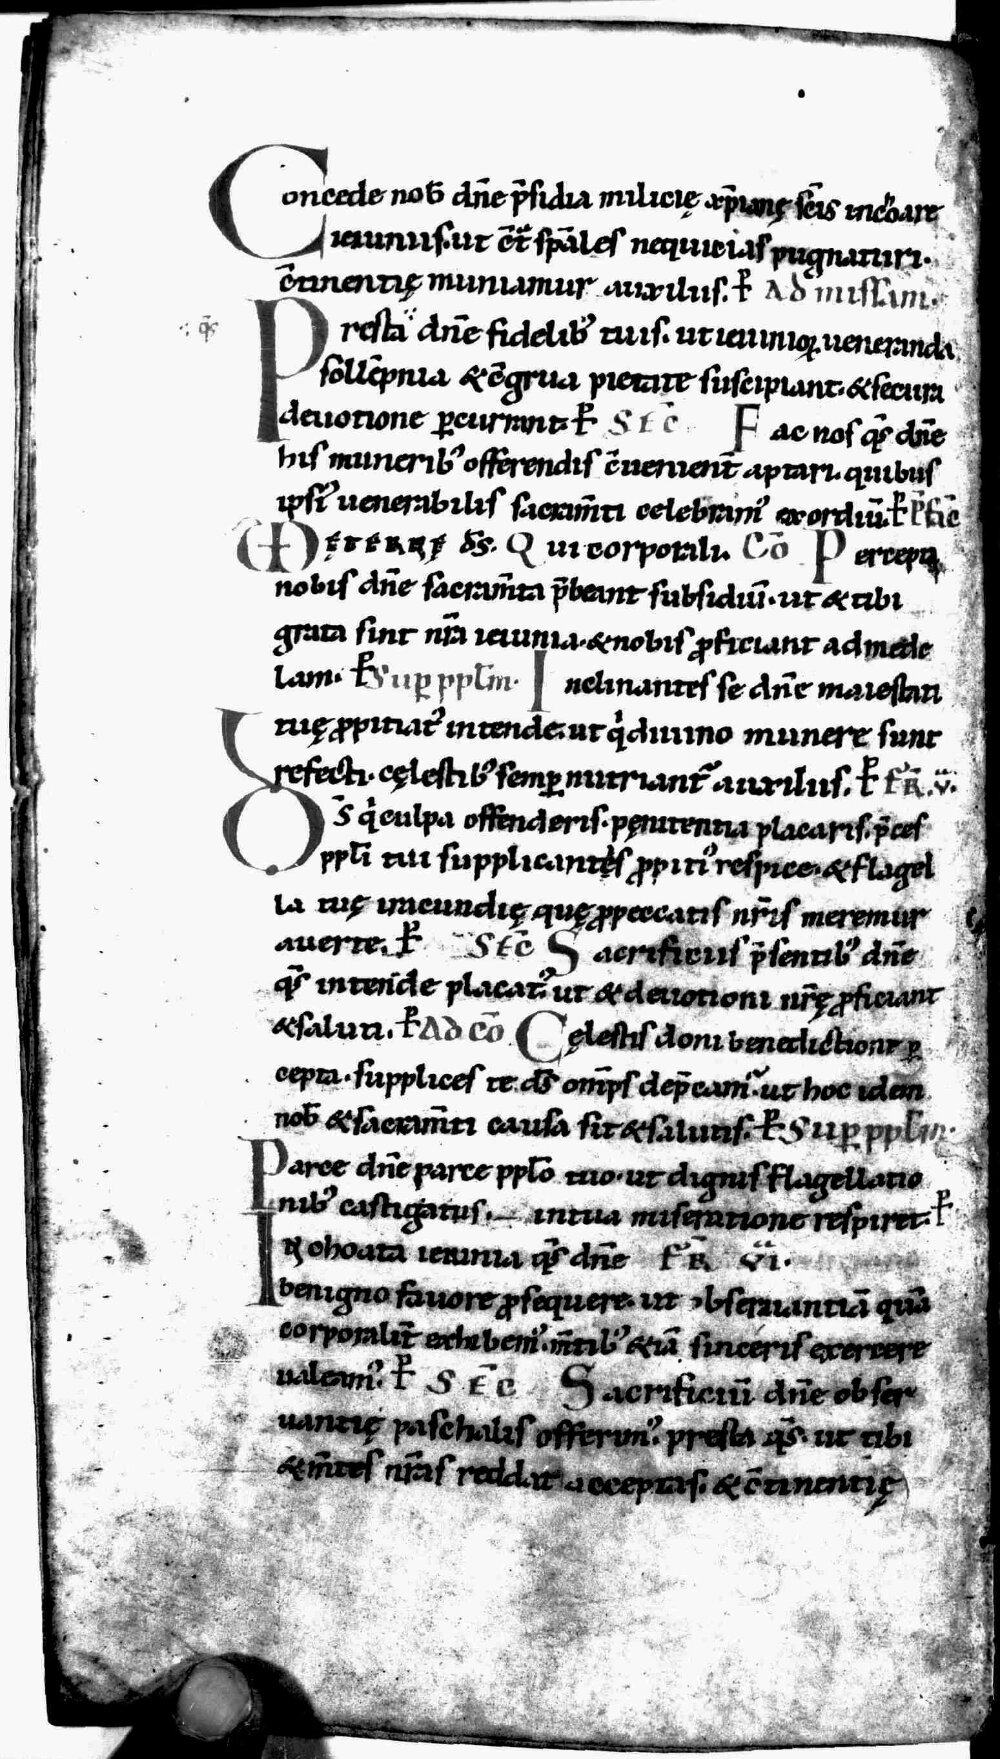 Concede nob̄ dn̄e p̄sidia milicię xp̄ianę sc̄is inchoare
ieiuniis. ut ct̄ sp̄ales nequicias pugnaturi.
c̄tinentię muniamur auxiliis. P̄ Ad missam.
Presta dn̄e fidelib; tuis. ut ieiunioꝝ ueneranda
q̄s
sollēpnia & c̄grua pietate suscipiant. & secura
deuotione ꝑcurrant. P̄ SEC̄ Fac nos q̄s dn̄e
his munerib; offerendis c̄uenient̄ aptari. quibus
ipsi᷒ uenerabilis sacram̄ti celebram᷒ exordiū. P̄ P̄fac̄
ĘTERNĘ ds̄. Qui corporali. Cō Percepta
nobis dn̄e sacram̄ta p̄beant subsidiū. ut & tibi
grata sint nr̄a ieiunia. & nobis ꝓficiant ad mede
lam. P̄ Suꝑ ppl̄m. Inclinantes se dn̄e maiestati
tuę ꝓpitiat᷒ intende. ut q̄ diuino munere sunt
refecti. cęlestib; semꝑ nutriant᷒ auxiliis. P̄ FR̄. V.
Ds̄ q̄ culpa offenderis. pęnitentia placaris. p̄ces
ppl̄i tui supplicantis ꝓpiti᷒ respice. & flagel
la tuę iracundię quę ꝓ peccatis nr̄is meremur
auerte. P̄ SEC̄ Sacrificiis p̄sentib; dn̄e
q̄s intende placat᷒. ut & deuotioni nr̄ę ꝓficiant
& saluti. P̄ Ad cō Cęlestis doni benedictione ꝑ
cepta. supplices te ds̄ om̄ps dep̄cam᷒. ut hoc idem
nob̄ & sacram̄ti causa sit & salutis. P̄ Suꝑ ppl̄m.
Parce dn̄e parce ppl̄o tuo. ut dignis flagellatio
nib; castigatus. in tua miseratione respiret. P̄
Inchoata ieiunia q̄s dn̄e FR̄ VI.
benigno fauore ꝓsequere. ut obseruantiā quā
corporalit̄ exhibem᷒. m̄tib; &iā sinceris exercere
ualeam᷒. P̄ SEC̄ Sacrificiū dn̄e obser
uantię paschalis offerim᷒. presta q̄s. ut tibi
& m̄tes nr̄as reddat acceptas. & c̄tinentię